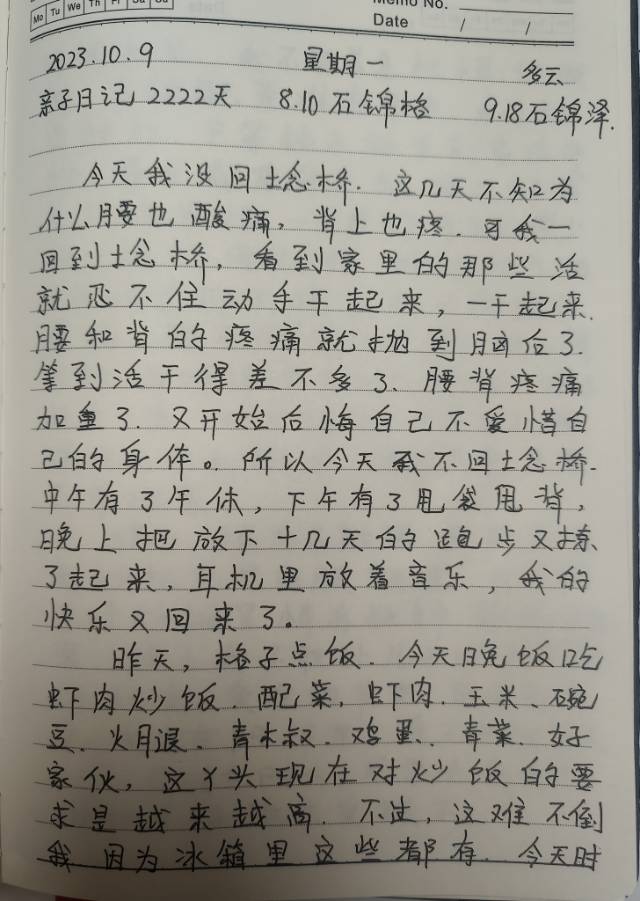 Mo Tu We Th Fr Sa Su
Memo No.
Date / /
2023.10.9 星期一 多云
亲子日记2222天 8.10石锦格 9.18石锦泽.
今天我没回埝桥.这几天不知为
什么腰也酸痛,背上也疼.可我一
回到埝桥,看到家里的那些活
就忍不住动手干起来,一干起来.
腰和背的疼痛就抛到脑后了.
等到活干得差不多了.腰背疼痛
加重了.又开始后悔自己不爱惜自
己的身体。所以今天我不回埝桥.
中午有了午休,下午有了甩袋甩背,
晚上把放下十几天的跑步又捡
了起来,耳机里放着音乐,我的
快乐又回来了。
昨天,格子点饭.今天晚饭吃
虾肉炒饭.配菜,虾肉.玉米、豌
豆、火腿、青木叔.鸡蛋、青菜.好
家伙,这丫头现在对炒饭的要
求是越来越高.不过,这难不倒
我因为冰箱里这些都有.今天时